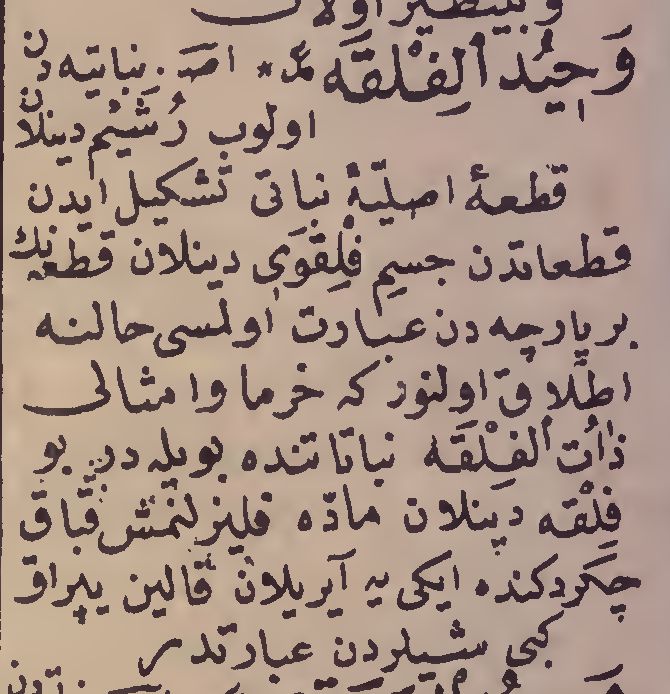 وَحِيدُ الفِلْقَه مر * اصـ. نباتیه دن
اولوب رُشَیْم دینلان
قطعهٔ اصلیّهٔ نباتی تشکیل ایدن
قطعاتدن جسمِ فِلْقَوی دینلان قطعه‌نك
بر پارچه دن عبارت اولمسی حالنه
اطلاق اولنور که خرما و امثالی
ذاتُ الفِلْقَه نباتاتنده بویله در بو
فِلْقه دینلان مادّه فلیزلنمش قباق
چکردکنده ایکی یه آیریلان قالین یپراق
کبی شیلردن عبارتدر